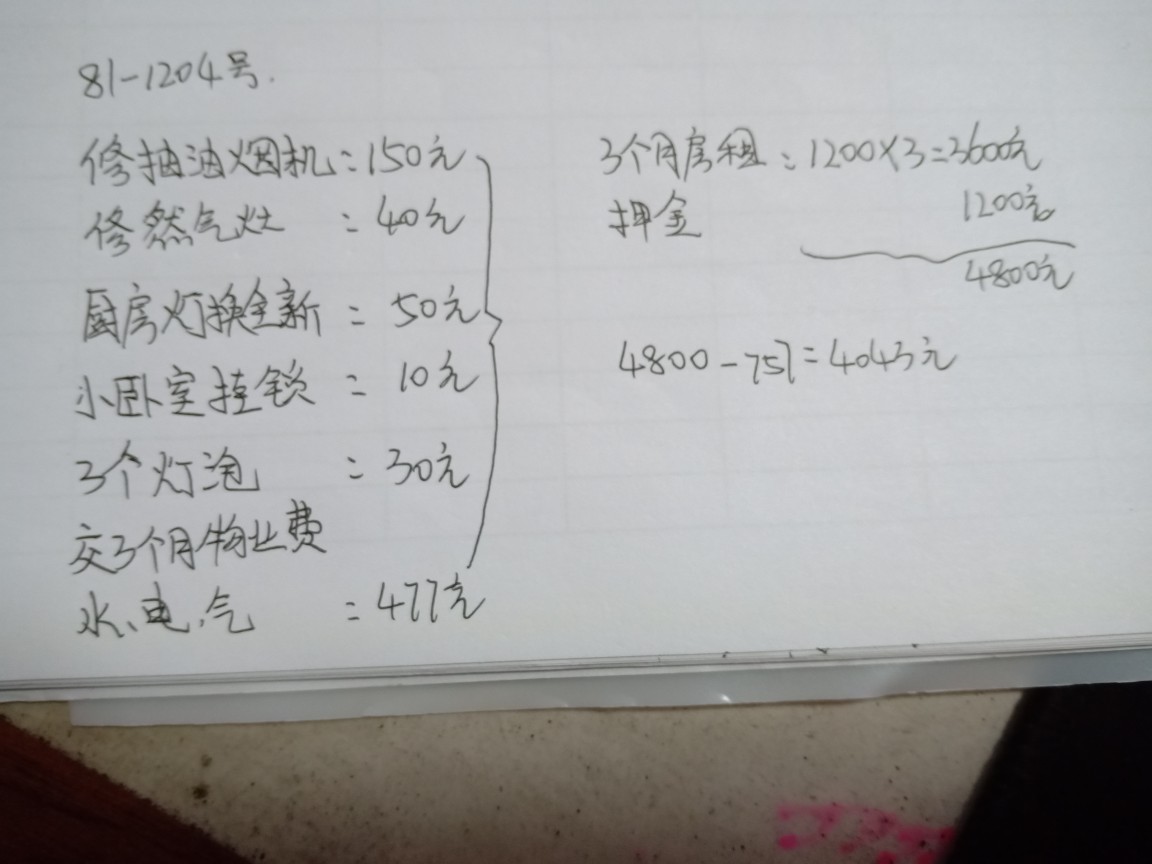 81-1204号.
修抽油烟机:150元
修然气灶 : 40元
厨房灯换全新 : 50元
小卧室挂锁 : 10元
3个灯泡 : 30元
交3个月物业费
水、电、气 : 477元
3个月房租 : 1200×3=3600元
押金 1200元
4800元
4800-757=4043元